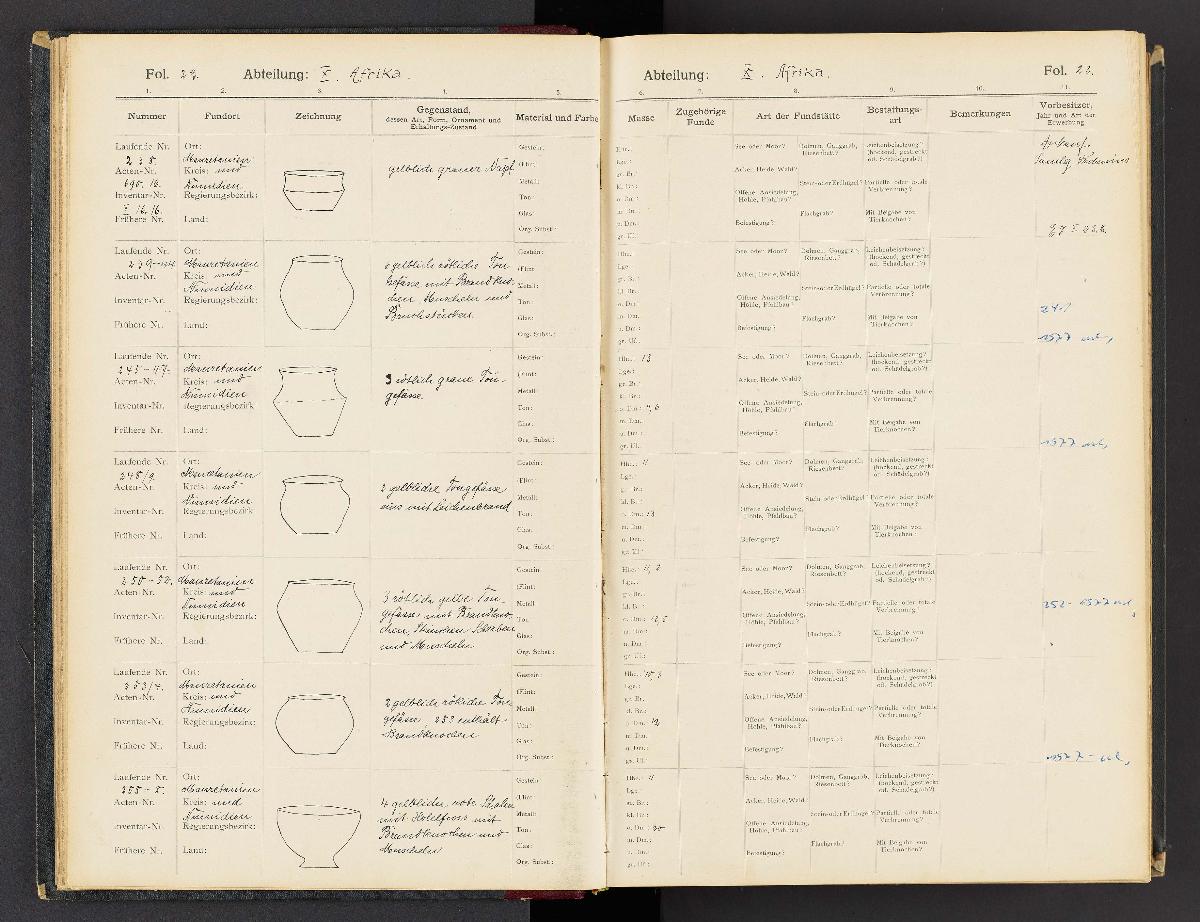 Fol. 24. Abteilung: X. Afrika.
1. 2. 3. 4. 5.
Nummer Fundort Zeichnung Gegenstand, dessen Art, Form, Ornament und Erhaltungs-Zustand Material und Farbe
Laufende Nr. Ort: Gestein:
238. Mauretanien gelblich grauer Napf
Acten-Nr. Kreis: und (Flint:
690.16. Numidien Metall:
Inventar-Nr. Regierungsbezirk: Ton:
X 16.16. Glas:
Frühere Nr. Land: Org. Subst:
Laufende Nr. Ort: Gestein:
239- Mauretanien 6 gelblich rötliche Ton-
Acten-Nr. Kreis: und gefässe mit Brandkno- (Flint:
Numidien chen Muscheln und Metall:
Inventar-Nr. Regierungsbezirk: Bruchstücken Ton:
Glas:
Frühere Nr. Land: Org. Subst:
Laufende Nr. Ort: Gestein:
245-47. Mauretanien 3 rötlich graue Ton-
Acten-Nr. Kreis: und gefässe. (Flint:
Numidien Metall:
Inventar-Nr. Regierungsbezirk: Ton:
Glas:
Frühere Nr. Land: Org. Subst:
Laufende Nr. Ort: Gestein:
248/9 Mauretanien 2 gelbliche Tongefässe
Acten-Nr. Kreis: und eins mit Leichenbrand (Flint:
Numidien Metall:
Inventar-Nr. Regierungsbezirk: Ton:
Glas:
Frühere Nr. Land: Org. Subst:
Laufende Nr. Ort: Gestein:
250-52. Mauretanien 3 rötlich gelbe Ton-
Acten-Nr. Kreis: und gefässe mit Brandkno- (Flint:
Numidien chen, Scherben Metall:
Inventar-Nr. Regierungsbezirk: und Muscheln Ton:
Glas:
Frühere Nr. Land: Org. Subst:
Laufende Nr. Ort: Gestein:
253/4. Mauretanien 2 gelblich rötliche Ton-
Acten-Nr. Kreis: und gefässe, 253 enthält (Flint:
Numidien Brandknochen Metall:
Inventar-Nr. Regierungsbezirk: Ton:
Glas:
Frühere Nr. Land: Org. Subst:
Laufende Nr. Ort: Gestein:
255-8. Mauretanien 4 gelbliche, rote Schalen
Acten-Nr. Kreis: und mit Hohlfuss mit (Flint:
Numidien Brandknochen und Metall:
Inventar-Nr. Regierungsbezirk: Muscheln Ton:
Glas:
Frühere Nr. Land: Org. Subst:
Abteilung: X. Afrika. Fol. 22.
6. 7. 8. 9. 10. 11.
Masse Zugehörige Funde Art der Fundstätte Bestattungsart Bemerkungen Vorbesitzer, Jahr und Art der Erwerbung
Hhe.: See oder Moor? Dolmen, Ganggrab, Riesenbett? Leichenbeisetzung? (hockend, gestreckt od. Schädelgrab?) Ankauf.
Lge.:
gr. Br.: Acker, Heide, Wald?
kl. Br.: Stein- oder Erdhügel? Partielle oder totale Verbrennung?
o. Dm.: Offene Ansiedelung, Höhle, Pfahlbau?
m. Dm.: Flachgrab? Mit Beigabe von Tierknochen?
u. Dm.: Befestigung?
gr. Uf.:
See oder Moor? Dolmen, Ganggrab, Riesenbett? Leichenbeisetzung? (hockend, gestreckt od. Schädelgrab?)
Lge.:
gr. Br.: Acker, Heide, Wald?
kl. Br.: Stein- oder Erdhügel? Partielle oder totale Verbrennung?
o. Dm.: Offene Ansiedelung, Höhle, Pfahlbau? 241
m. Dm.: Flachgrab? Mit Beigabe von Tierknochen?
u. Dm.: Befestigung?
gr. Uf.: 1577
Hhe.: 13 See oder Moor? Dolmen, Ganggrab, Riesenbett? Leichenbeisetzung? (hockend, gestreckt od. Schädelgrab?)
Lge.:
gr. Br.: Acker, Heide, Wald?
kl. Br.: Stein- oder Erdhügel? Partielle oder totale Verbrennung?
o. Dm.: Offene Ansiedelung, Höhle, Pfahlbau?
m. Dm.: Flachgrab? Mit Beigabe von Tierknochen?
u. Dm.: Befestigung?
gr. Uf.: 1577
Hhe.: 11 See oder Moor? Dolmen, Ganggrab, Riesenbett? Leichenbeisetzung? (hockend, gestreckt od. Schädelgrab?)
Lge.:
gr. Br.: Acker, Heide, Wald?
kl. Br.: Stein- oder Erdhügel? Partielle oder totale Verbrennung?
o. Dm.: 13 Offene Ansiedelung, Höhle, Pfahlbau?
m. Dm.: Flachgrab? Mit Beigabe von Tierknochen?
u. Dm.: Befestigung?
gr. Uf.:
Hhe.: See oder Moor? Dolmen, Ganggrab, Riesenbett? Leichenbeisetzung? (hockend, gestreckt od. Schädelgrab?)
Lge.:
gr. Br.: Acker, Heide, Wald?
kl. Br.: Stein- oder Erdhügel? Partielle oder totale Verbrennung? 252- 1577
o. Dm.: Offene Ansiedelung, Höhle, Pfahlbau?
m. Dm.: Flachgrab? Mit Beigabe von Tierknochen?
u. Dm.: Befestigung?
gr. Uf.:
Hhe.: See oder Moor? Dolmen, Ganggrab, Riesenbett? Leichenbeisetzung? (hockend, gestreckt od. Schädelgrab?)
Lge.:
gr. Br.: Acker, Heide, Wald?
kl. Br.: Stein- oder Erdhügel? Partielle oder totale Verbrennung?
o. Dm.: 12 Offene Ansiedelung, Höhle, Pfahlbau?
m. Dm.: Flachgrab? Mit Beigabe von Tierknochen?
u. Dm.: Befestigung?
gr. Uf.: 1577
Hhe.: 11 See oder Moor? Dolmen, Ganggrab, Riesenbett? Leichenbeisetzung? (hockend, gestreckt od. Schädelgrab?)
Lge.:
gr. Br.: Acker, Heide, Wald?
kl. Br.: Stein- oder Erdhügel? Partielle oder totale Verbrennung?
o. Dm.: 20 Offene Ansiedelung, Höhle, Pfahlbau?
m. Dm.: Flachgrab? Mit Beigabe von Tierknochen?
u. Dm.: Befestigung?
gr. Uf.: